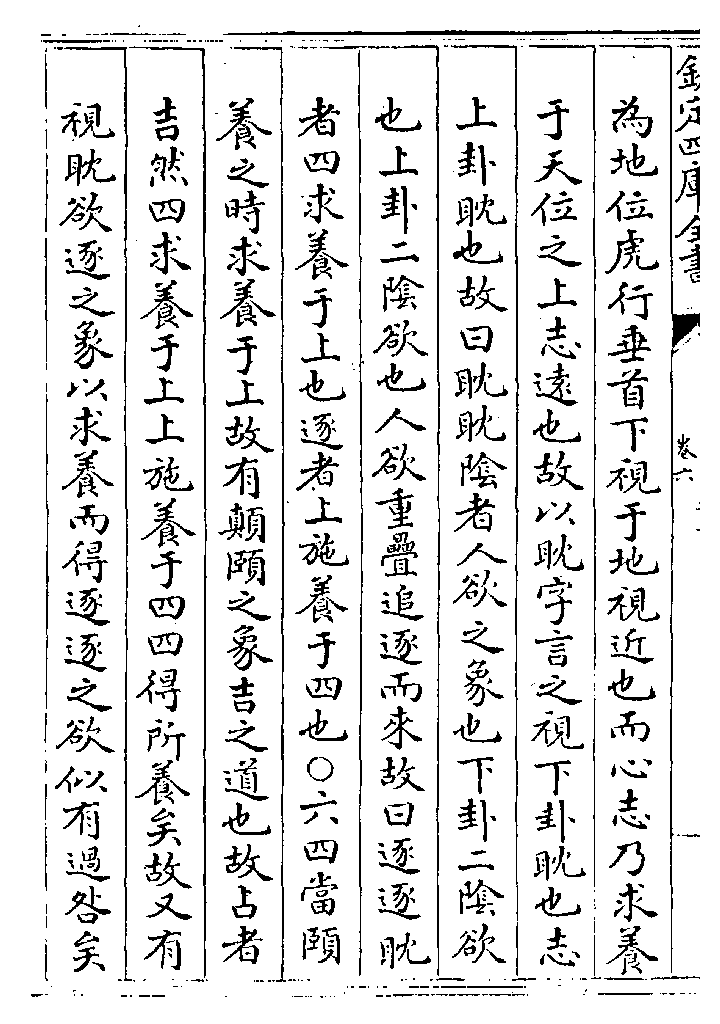 欽定四庫全書
卷六
為地位虎行垂首下視于地視近也而心志乃求養
于天位之上志遠也故以眈字言之視下卦眈也志
上卦眈也故曰眈眈陰者人欲之象也下卦二陰欲
也上卦二陰欲也人欲重疊追逐而來故曰逐逐眈
者四求養于上也逐者上施養于四也○六四當頤
養之時求養于上故有顛頤之象吉之道也故占者
吉然四求養于上上施養于四四得所養矣故又有
視眈欲逐之象以求養而得逐逐之欲似有過咎矣